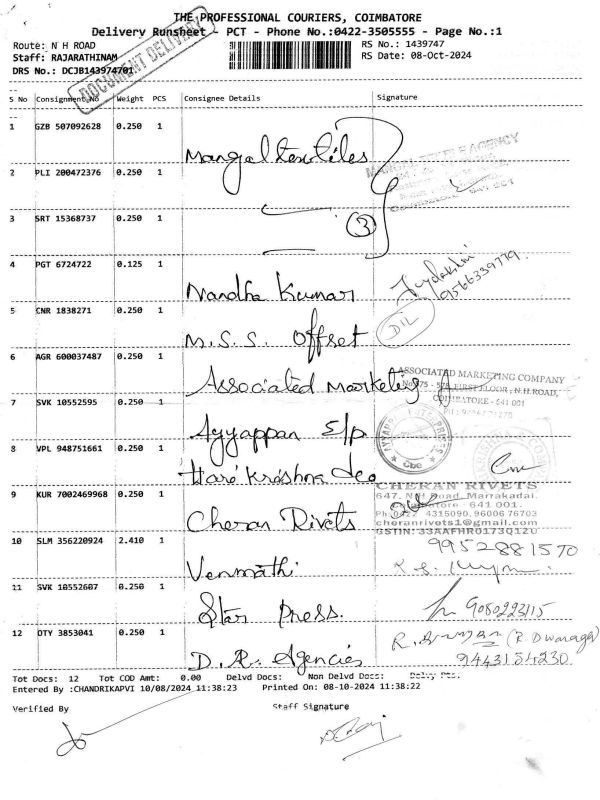 THE PROFESSIONAL COURIERS, COIMBATORE
Delivery Runsheet - PCT - Phone No.:0422-3505555 - Page No.:1
Route: N H ROAD
RS No.: 1439747
Staff: RAJARATHINAM
RS Date: 08-Oct-2024
DRS No.: DCJB143974701
DOCUMENT DELIVERY
S No Consignment No Weight PCS Consignee Details Signature
1 GZB 507092628 0.250 1 Mangal textiles
2 PLI 200472376 0.250 1
3 SRT 15368737 0.250 1 3
4 PGT 6724722 0.125 1 Nandha Kumar 9566339779
5 CNR 1838271 0.250 1 M.S.S. Offset
6 AGR 600037487 0.250 1 Associated Marketing
ASSOCIATED MARKETING COMPANY
FIRST FLOOR, N.H.ROAD,
COIMBATORE - 641 001
7 SVK 10552595 0.250 1 Ayyappan E/p
8 VPL 948751661 0.250 1 Hare Krishna &co
9 KUR 7002469968 0.250 1 Cheran Rivets
CHERAN RIVETS
647, N.H Road, Marrakadai.
Coimbatore 641 001.
Ph:0422 4315090, 96006 76703
cheranrivets1@gmail.com
GSTIN: 33AAFHR0173Q1ZU
10 SLM 356220924 2.410 1 Venmathi 9952881570
11 SVK 10552607 0.250 1 Star Press. 9080223115
12 OTY 3853041 0.250 1 D.R. Agencies 9443154230
Tot Docs: 12 Tot COD Amt: 0.00 Delvd Docs: Non Delvd Docs:
Entered By :CHANDRIKAPVI 10/08/2024 11:38:23 Printed On: 08-10-2024 11:38:22
Verified By Staff Signature